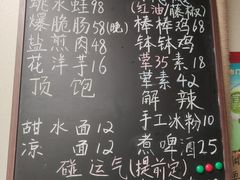 跳水蛙98
爆脆肠58(晚)
盐煎肉48
花洋芋16
顶饱
甜水面12
凉面12
(红油/藤椒)
棒棒鸡68
钵钵鸡
荤35素18
荤素42
解辣
手工冰粉10
煮啤酒25
碰运气(提前定)